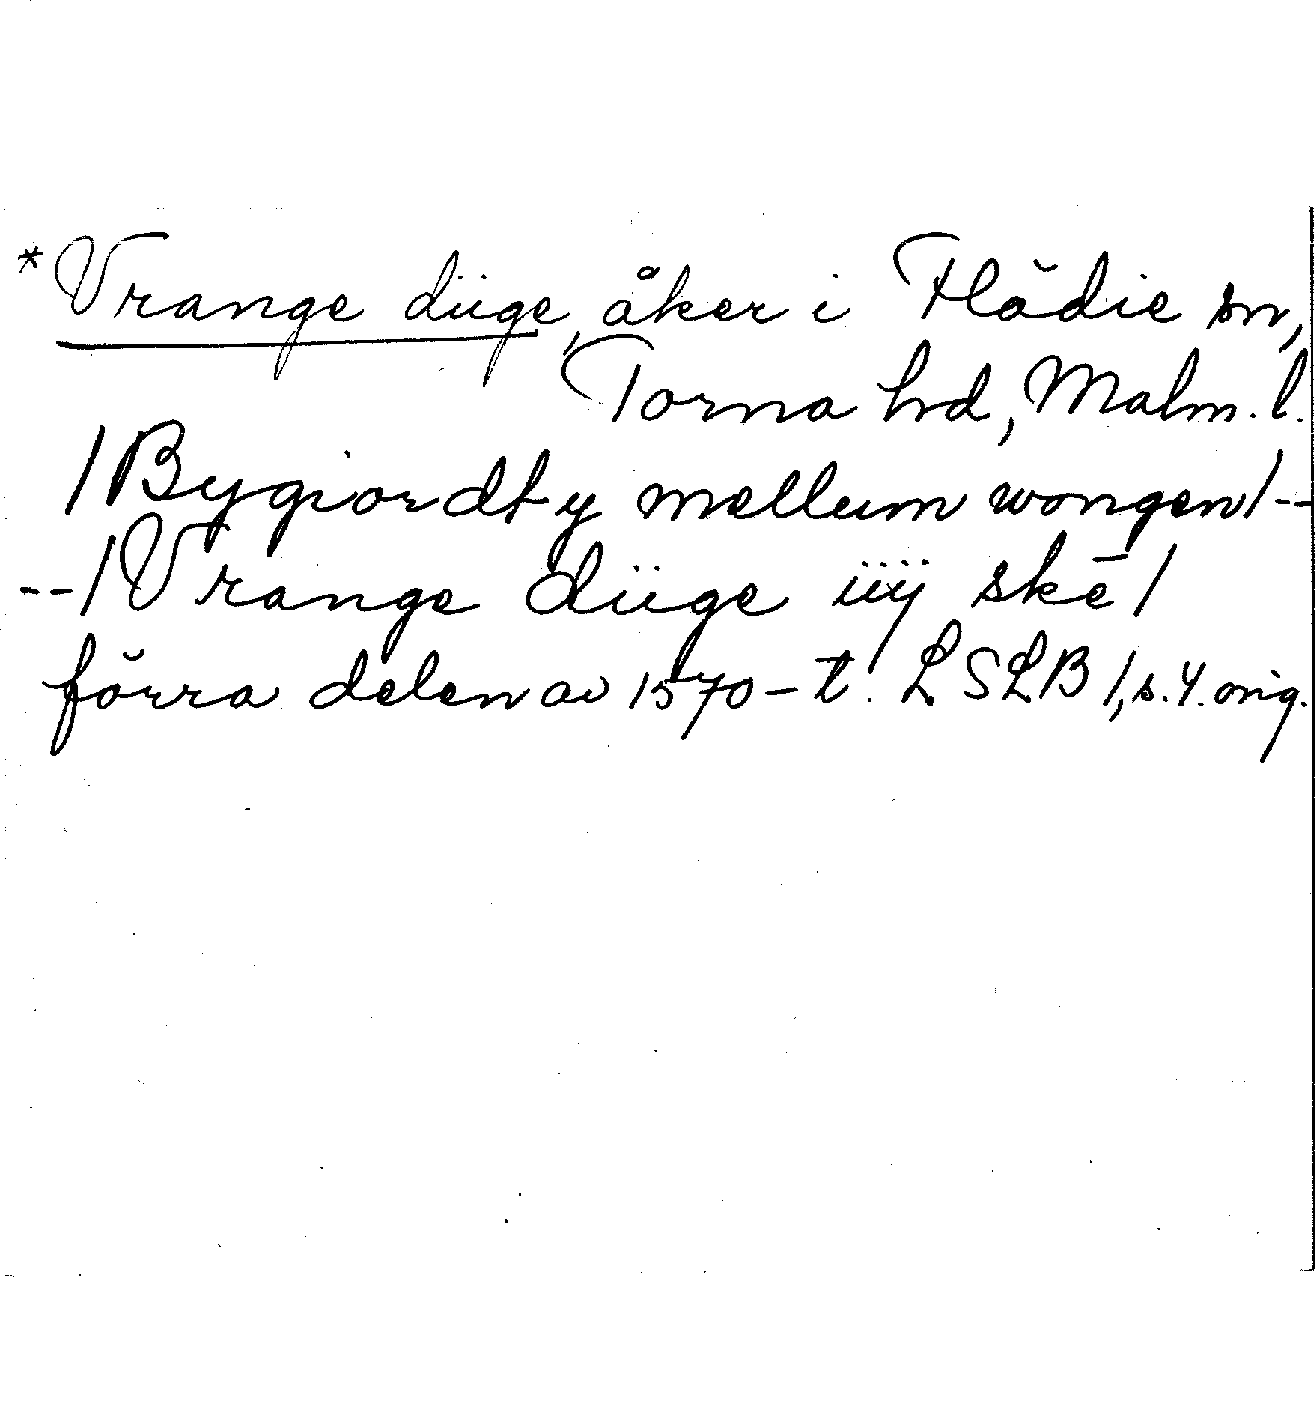 *Vrange düge, åker i Flädie sn,
Torna hd, Malm. l.
/Bygiordt y mellum wongen/--
--/Vrange düge iiij skē/
förra delen av 1570-t. LSLB 1, s. 4. orig.